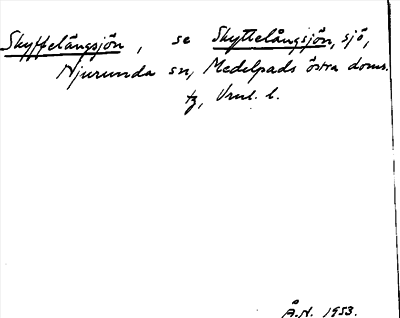 Skyffelångsjön, se Skyttelångsjön, sjö,
Njurunda sn, Medelpads östra doms.
tg, Vnl. l.
Å.N. 1953.